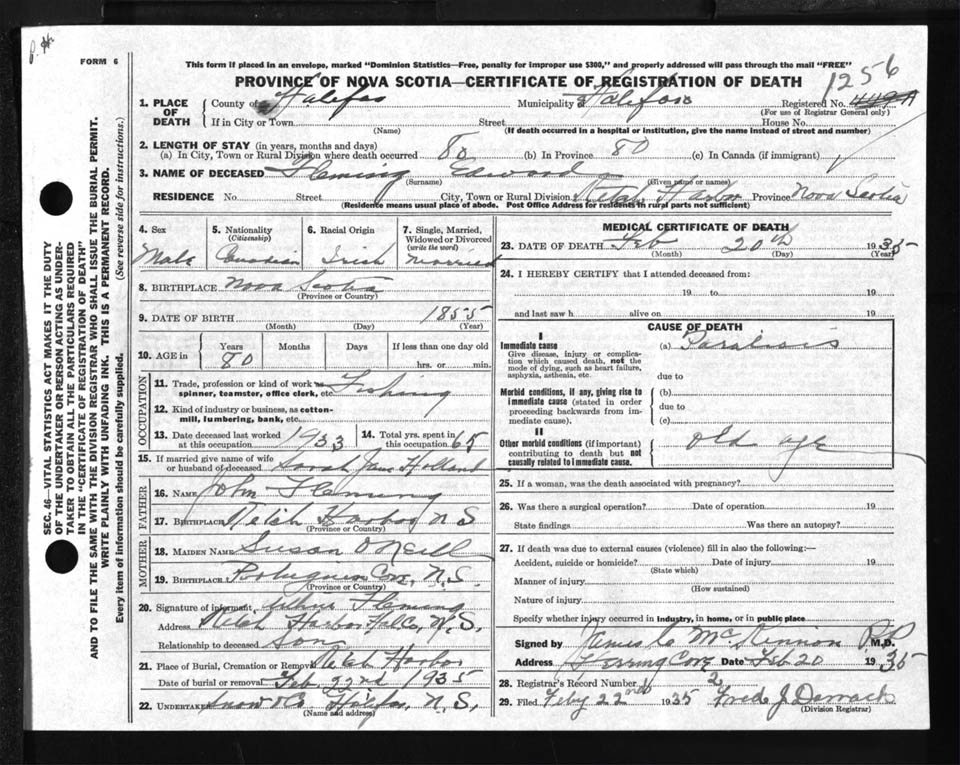 P. H.
FORM 6
This form if placed in an envelope, marked "Dominion Statistics—Free, penalty for improper use $300," and properly addressed will pass through the mail "FREE"
PROVINCE OF NOVA SCOTIA—CERTIFICATE OF REGISTRATION OF DEATH
1256
1. PLACE OF DEATH
County of Halifax Municipality of Halifax Registered No. 449A
(For use of Registrar General only)
If in City or Town Street House No.
(Name) (If death occurred in a hospital or institution, give the name instead of street and number)
2. LENGTH OF STAY (in years, months and days)
(a) In City, Town or Rural Division where death occurred 80 (b) In Province 80 (c) In Canada (if immigrant)
3. NAME OF DECEASED Fleming Edward
(Surname) (Given name or names)
RESIDENCE No. Street City, Town or Rural Division Ketch Harbor Province Nova Scotia
(Residence means usual place of abode. Post Office Address for residents in rural parts not sufficient)
4. Sex Male
5. Nationality (Citizenship) Canadian
6. Racial Origin Irish
7. Single, Married, Widowed or Divorced (write the word) Married
8. BIRTHPLACE Nova Scotia
(Province or Country)
9. DATE OF BIRTH 1855
(Month) (Day) (Year)
10. AGE in Years Months Days If less than one day old
80 hrs. or min.
OCCUPATION
11. Trade, profession or kind of work as spinner, teamster, office clerk, etc. Fishing
12. Kind of industry or business, as cotton-mill, lumbering, bank, etc.
13. Date deceased last worked at this occupation 1933 14. Total yrs. spent in this occupation 65
15. If married give name of wife or husband of deceased Sarah Jane Holland
FATHER
16. NAME John Fleming
17. BIRTHPLACE Ketch Harbor N S
(Province or Country)
MOTHER
18. MAIDEN NAME Susan O Neill
19. BIRTHPLACE Cove, N.S.
(Province or Country)
20. Signature of informant Fleming
Address Ketch Harbor Hfx Co, N.S.
Relationship to deceased Son
21. Place of Burial, Cremation or Removal Ketch Harbor
Date of burial or removal Feb. 22nd 1935
22. UNDERTAKER Snow & Co Halifax, N.S.
(Name and address)
MEDICAL CERTIFICATE OF DEATH
23. DATE OF DEATH Feb 20th 1935
(Month) (Day) (Year)
24. I HEREBY CERTIFY that I attended deceased from:
19 to 19
and last saw h alive on 19
CAUSE OF DEATH
I
Immediate cause
Give disease, injury or complication which caused death, not the mode of dying, such as heart failure, asphyxia, asthenia, etc.
(a) Paralisis
due to
Morbid conditions, if any, giving rise to immediate cause (stated in order proceeding backwards from immediate cause).
(b)
due to
(c)
II
Other morbid conditions (if important) contributing to death but not causally related to immediate cause.
old age
25. If a woman, was the death associated with pregnancy?
26. Was there a surgical operation? Date of operation 19
State findings Was there an autopsy?
27. If death was due to external causes (violence) fill in also the following:—
Accident, suicide or homicide? Date of injury 19
(State which)
Manner of injury
(How sustained)
Nature of injury
Specify whether injury occurred in industry, in home, or in public place
Signed by James Co McKinnon P.P. M.D.
Address Herring Cove Date Feb 20 1935
28. Registrar's Record Number 2
29. Filed Feby 22nd 1935 Fred J Darrach
(Division Registrar)
SEC. 46—VITAL STATISTICS ACT MAKES IT THE DUTY
OF THE UNDERTAKER OR PERSON ACTING AS UNDER-
TAKER TO OBTAIN ALL THE PARTICULARS REQUIRED
IN THE "CERTIFICATE OF REGISTRATION OF DEATH"
AND TO FILE THE SAME WITH THE DIVISION REGISTRAR WHO SHALL ISSUE THE BURIAL PERMIT.
WRITE PLAINLY WITH UNFADING INK. THIS IS A PERMANENT RECORD.
Every item of information should be carefully supplied. (See reverse side for instructions.)